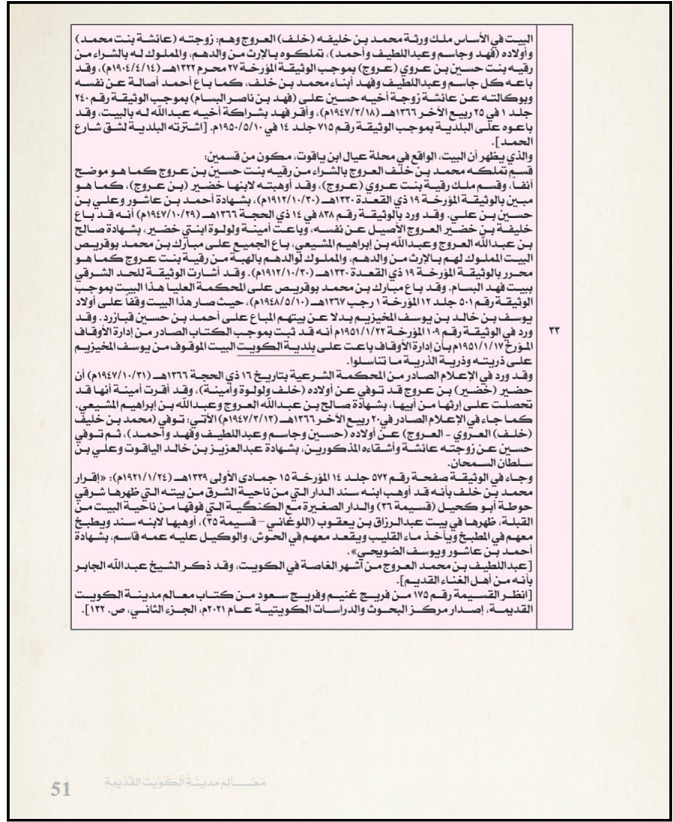 البيت في الأساس ملك ورثة محمد بن خليفه (خلف) العروج وهم: زوجته (عائشة بنت محمد)
وأولاده (فهد وجاسم وعبداللطيف وأحمد)، تملكوه بالإرث من والدهم، والمملوك له بالشراء من
رقيه بنت حسين بن عروي (عروج) بموجب الوثيقة المؤرخة ٢٧ محرم ١٣٢٢هـ (١٩٠٤/٤/١٤م)، وقد
باعه كل جاسم وعبداللطيف وفهد أبناء محمد بن خلف، كما باع أحمد أصالة عن نفسه
وبوكالته عن عائشة زوجة أخيه حسين على (فهد بن ناصر البسام) بموجب الوثيقة رقم ٢٤٠
جلد ١ في ٢٥ ربيع الآخر ١٣٦٦هـ (١٩٤٧/٣/١٨م)، وأقر فهد بشراكة أخيه عبدالله له بالبيت، وقد
باعوه على البلدية بموجب الوثيقة رقم ٧١٥ جلد ١٤ في ١٩٥٠/٥/١٠م. [اشترته البلدية لشق شارع
الحمد].
والذي يظهر أن البيت، الواقع في محلة عيال ابن ياقوت، مكون من قسمين:
قسم تملكه محمد بن خلف العروج بالشراء من رقيه بنت حسين بن عروج كما هو موضح
آنفاً، وقسم ملك رقية بنت عروي (عروج)، وقد أوهبته لابنها خضير (بن عروج)، كما هو
مبين بالوثيقة المؤرخة ١٩ ذي القعدة ١٣٣٠هـ (١٩١٢/١٠/٣٠م)، بشهادة أحمد بن عاشور وعلي بن
حسين بن علي. وقد ورد بالوثيقة رقم ٨٣٨ في ١٤ ذي الحجة ١٣٦٦هـ (١٩٤٧/١٠/٢٩م) أنه قد باع
خليفة بن خضير العروج الأصيل عن نفسه، وباعت أمينة ولولوة ابنتي خضير، بشهادة صالح
بن عبدالله العروج وعبدالله بن إبراهيم المشيعي، باع الجميع على مبارك بن محمد بوقريص
البيت المملوك لهم بالإرث من والدهم، والمملوك لوالدهم بالهبة من رقية بنت عروج كما هو
محرر بالوثيقة المؤرخة ١٩ ذي القعدة ١٣٣٠هـ (١٩١٢/١٠/٣٠م). وقد أشارت الوثيقة للحد الشرقي
ببيت فهد البسام. وقد باع مبارك بن محمد بوقريص على المحكمة العليا هذا البيت بموجب
الوثيقة رقم ٥٠١ جلد ١٢ المؤرخة ١ رجب ١٣٦٧هـ (١٩٤٨/٥/١٠م)، حيث صار هذا البيت وقفاً على أولاد
يوسف بن خالد بن يوسف المخيزيم بدلا عن بيتهم المباع على أحمد بن حسين قبازرد. وقد
ورد في الوثيقة رقم ١٠٩ المؤرخة ١٩٥١/١/٢٢م أنه قد ثبت بموجب الكتاب الصادر من إدارة الأوقاف
المؤرخ ١٩٥١/١/١٧م بأن إدارة الأوقاف باعت على بلدية الكويت البيت الموقوف من يوسف المخيزيم
على ذريته وذرية الذرية ما تناسلوا.
وقد ورد في الإعلام الصادر من المحكمة الشرعية بتاريخ ١٦ ذي الحجة ١٣٦٦هـ (١٩٤٧/١٠/٣١م) أن
حضير (خضير) بن عروج قد توفي عن أولاده (خلف ولولوة وأمينة)، وقد أقرت أمينة أنها قد
تحصلت على إرثها من أبيها، بشهادة صالح بن عبدالله العروج وعبدالله بن إبراهيم المشيعي.
كما جاء في الإعلام الصادر في ٢٠ ربيع الآخر ١٣٦٦هـ (١٩٤٧/٣/١٣م) الآتي: توفي (محمد بن خليف
(خلف) العروي - العروج) عن أولاده (حسين وجاسم وعبداللطيف وفهد وأحمد)، ثم توفي
حسين عن زوجته عائشة وأشقاءه المذكورين، بشهادة عبدالعزيز بن خالد الياقوت وعلي بن
سلطان السمحان.
وجاء في الوثيقة صفحة رقم ٥٧٢ جلد ١٤ المؤرخة ١٥ جمادى الأولى ١٣٣٩هـ (١٩٢١/١/٢٤م): «إقرار
محمد بن خلف بأنه قد أوهب ابنه سند الدار التي من ناحية الشرق من بيته التي ظهرها شرقي
حوطة أبو كحيل (قسيمة ٣٦) والدار الصغيرة مع الكنكية التي فوقها من ناحية البيت من
القبلة، ظهرها في بيت عبدالرزاق بن يعقوب (اللوغاني - قسيمة ٣٥)، أوهبها لابنه سند ويطبخ
معهم في المطبخ ويأخذ ماء القليب ويقعد معهم في الحوش، والوكيل عليه عمه قاسم، بشهادة
أحمد بن عاشور ويوسف الضويحي».
[عبداللطيف بن محمد العروج من أشهر الغاصة في الكويت، وقد ذكر الشيخ عبدالله الجابر
بأنه من أهل الغناء القديم].
[انظر القسيمة رقم ١٧٥ من فريج غنيم وفريج سعود من كتاب معالم مدينة الكويت
القديمة، إصدار مركز البحوث والدراسات الكويتية عام ٢٠٢١م، الجزء الثاني، ص. ١٢٢].
٣٣
مَعَالم مدينة الكويت القديمة
51